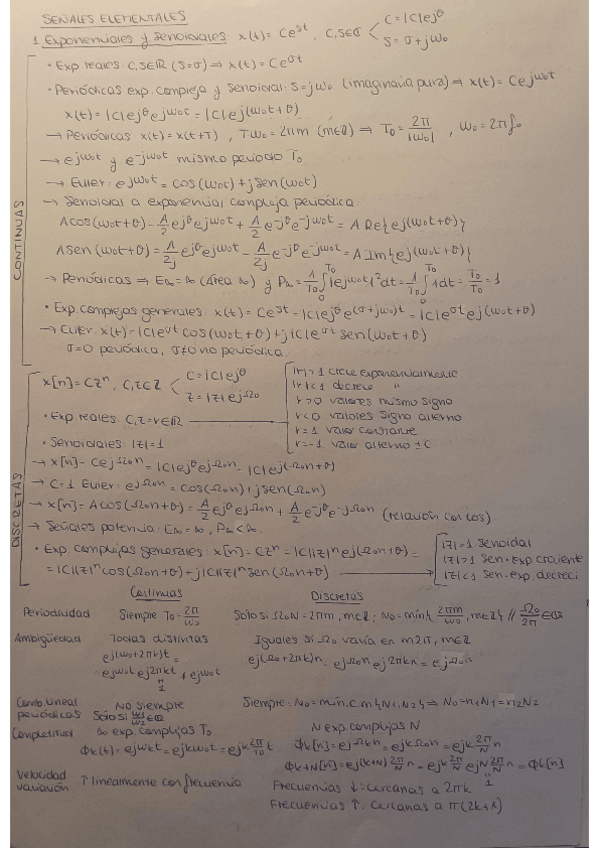 SEÑALES ELEMENTALES
1. Exponenciales y senoidales: x(t) = Ce^st, C,S∈ℂ < C=|C|e^jθ
S=σ+jω₀
CONTINUAS
• Exp reales: C,S∈ℝ (S=σ) ⇒ x(t) = Ce^σt
• Periódicas exp. compleja y senoidal: S=jω₀ (imaginaria pura) ⇒ x(t) = Ce^jω₀t
x(t) = |C|e^jθ e^jω₀t = |C|e^j(ω₀t+θ)
→ Periódicas x(t) = x(t+T), Tω₀=2πm (m∈ℤ) ⇒ T₀ = 2π/|ω₀|, ω₀=2πf₀
→ e^jω₀t y e^-jω₀t mismo período T₀
→ Euler: e^jω₀t = cos(ω₀t)+jsen(ω₀t)
→ Senoidal a exponencial compleja periódica:
Acos(ω₀t+θ) = A/2 e^jθ e^jω₀t + A/2 e^-jθ e^-jω₀t = A Re{e^j(ω₀t+θ)}
Asen(ω₀t+θ) = A/2j e^jθ e^jω₀t - A/2j e^-jθ e^-jω₀t = A Im{e^j(ω₀t+θ)}
→ Periódicas ⇒ E∞=∞ (Área ∞) y P∞ = 1/T₀ ∫₀^T₀ |e^jω₀t|²dt = 1/T₀ ∫₀^T₀ 1dt = T₀/T₀ = 1
• Exp. complejas generales: x(t) = Ce^st = |C|e^jθ e^(σ+jω₀)t = |C|e^σt e^j(ω₀t+θ)
→ Euler: x(t) = |C|e^σt cos(ω₀t+θ)+j|C|e^σt sen(ω₀t+θ)
σ=0 periódica, σ≠0 no periódica.
DISCRETAS
x[n] = Czⁿ, C,z∈ℤ < C=|C|e^jθ
z=|z|e^jΩ₀
• Exp reales: C,z=r∈ℝ →
|r|>1 crece exponencialmente
|r|<1 decrece "
r>0 valores mismo signo
r<0 valores signo alterno
r=1 valor constante
r=-1 valor alterno ±C
• Senoidales |z|=1
→ x[n] = Ce^jΩ₀n = |C|e^jθ e^jΩ₀n = |C|e^j(Ω₀n+θ)
→ C=1 Euler: e^jΩ₀n = cos(Ω₀n)+jsen(Ω₀n)
→ x[n] = Acos(Ω₀n+θ) = A/2 e^jθ e^jΩ₀n + A/2 e^-jθ e^-jΩ₀n (relación con cos)
→ Señales potencia: E∞=∞, P∞<∞.
• Exp complejas generales: x[n] = Czⁿ = |C||z|ⁿ e^j(Ω₀n+θ) =
= |C||z|ⁿ cos(Ω₀n+θ)+j|C||z|ⁿ sen(Ω₀n+θ) →
|z|=1 senoidal
|z|>1 sen·exp creciente
|z|<1 sen·exp. decreci
Continuas Discretas
Periodicidad Siempre T₀ = 2π/ω₀ Solo si Ω₀N=2πm, m∈ℤ; N₀=mín{2πm/ω₀, m∈ℤ} // Ω₀/2π∈ℚ
Ambigüedad Todas distintas Iguales si Ω₀ varía en m2π, m∈ℤ
e^j(ω₀+2πk)t = e^j(Ω₀+2πk)n = e^jΩ₀n e^j2πkn = e^jΩ₀n
e^jω₀t e^j2πkt ≠ e^jω₀t
Comb. lineal periódicas No siempre Siempre: N₀=mín.c.m{N₁,N₂} ⇒ N₀=n₁N₁=n₂N₂
Sólo si ω₁/ω₂∈ℚ
Completitud ∞ exp. complejas T₀ N exp. complejas N
Φk(t) = e^jωkt = e^jkω₀t = e^jk 2π/T₀ t Φk[n] = e^jΩkn = e^jkΩ₀n = e^jk 2π/N n
Φk+N[n] = e^j(k+N) 2π/N n = e^jk 2π/N n e^jN 2π/N n = Φk[n]
" 1
Velocidad variación ↑ linealmente con frecuencia Frecuencias ↓: cercanas a 2πk
Frecuencias ↑: cercanas a π(2k+1)